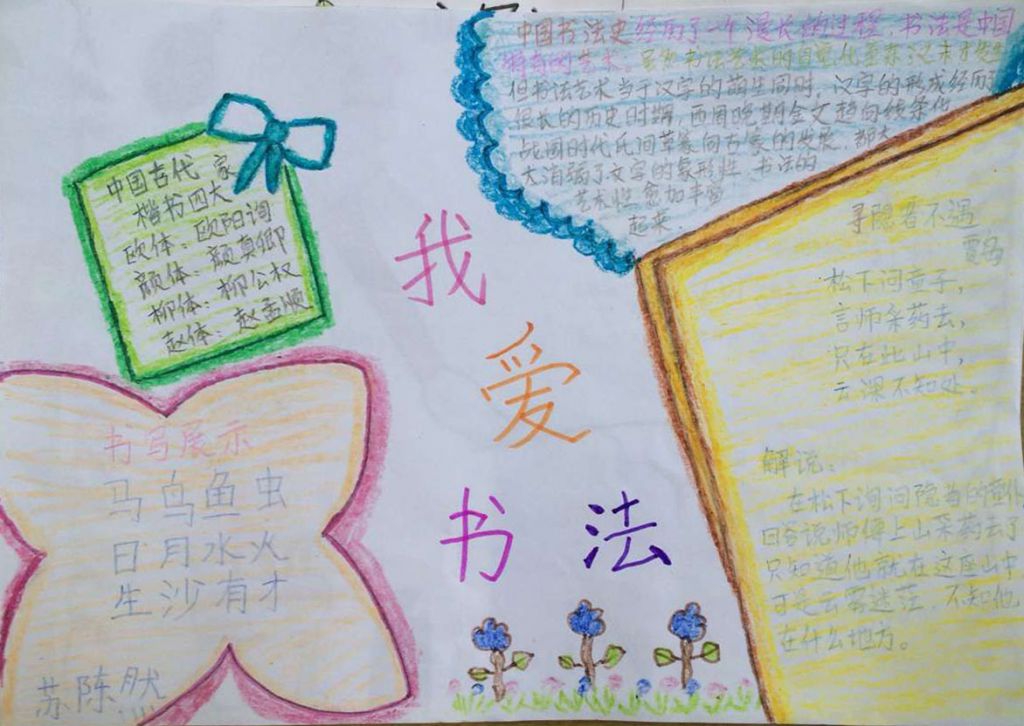 中国书法史经历了一个漫长的过程，书法是中国
特有的艺术。虽然书法艺术的自觉化至东汉末才发生
但书法艺术当于汉字的萌生同时，汉字的形成经历了
很长的历史时期，西周晚期金文趋向线条化
战国时代民间草篆向古隶的发展，都大
大消弱了文字的象形性，书法的
艺术性愈加丰富
起来。
中国古代 家
楷书四大
欧体：欧阳询
颜体：颜真卿
柳体：柳公权
赵体：赵孟顺
我
爱
书 法
寻隐者不遇
贾岛
松下问童子，
言师采药去，
只在此山中，
云深不知处。
解说：
在松下询问隐当的童
回答说师傅上山采药去了
只知道他就在这座山中
可是云雾迷茫，不知他
在什么地方。
书写展示
马鸟鱼虫
日月水火
生沙有才
苏陈然